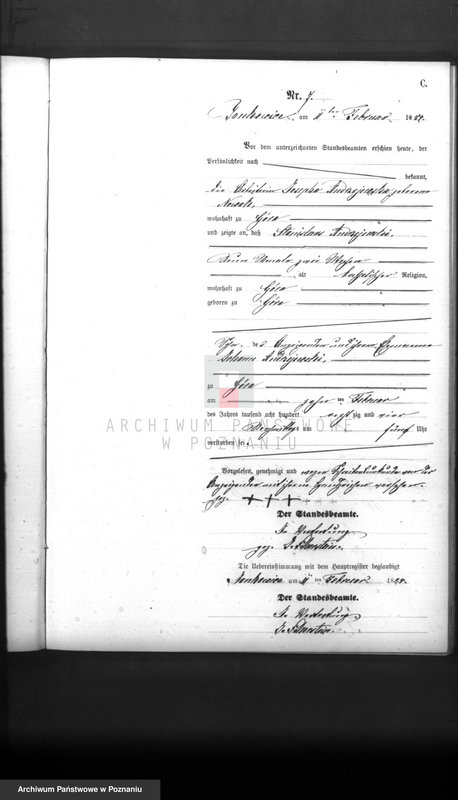 C.
Nr. 7.
am 11 ten Februar 1884.
Vor dem unterzeichneten Standesbeamten erschien heute, der
Persönlichkeit nach
bekannt,
die Josepha Andrzejewska geborene
Nowak,
wohnhaft zu Góra
und zeigte an, daß Stanislaus Andrzejewski,
neun Monate zwei Wochen
alt katholischer Religion,
wohnhaft zu Góra
geboren zu Góra
Sohn der Anzeigenden und ihres Ehemannes
Andrzejewski,
zu Góra
am zehn ten Februar
des Jahres tausend acht hundert acht zig und vier
Nachmittags um fünf Uhr
verstorben sei
Vorgelesen, genehmigt und wegen Schreibensunkunde von der
Anzeigenden mit ihrem Handzeichen versehen.
gez. +++
Der Standesbeamte.
In Vertretung
gez.
Die Uebereinstimmung mit dem Hauptregister beglaubigt
am 11 ten Februar 1884.
Der Standesbeamte.
In Vertretung
ARCHIWUM PAŃSTWOWE
W POZNANIU
Archiwum Państwowe w Poznaniu